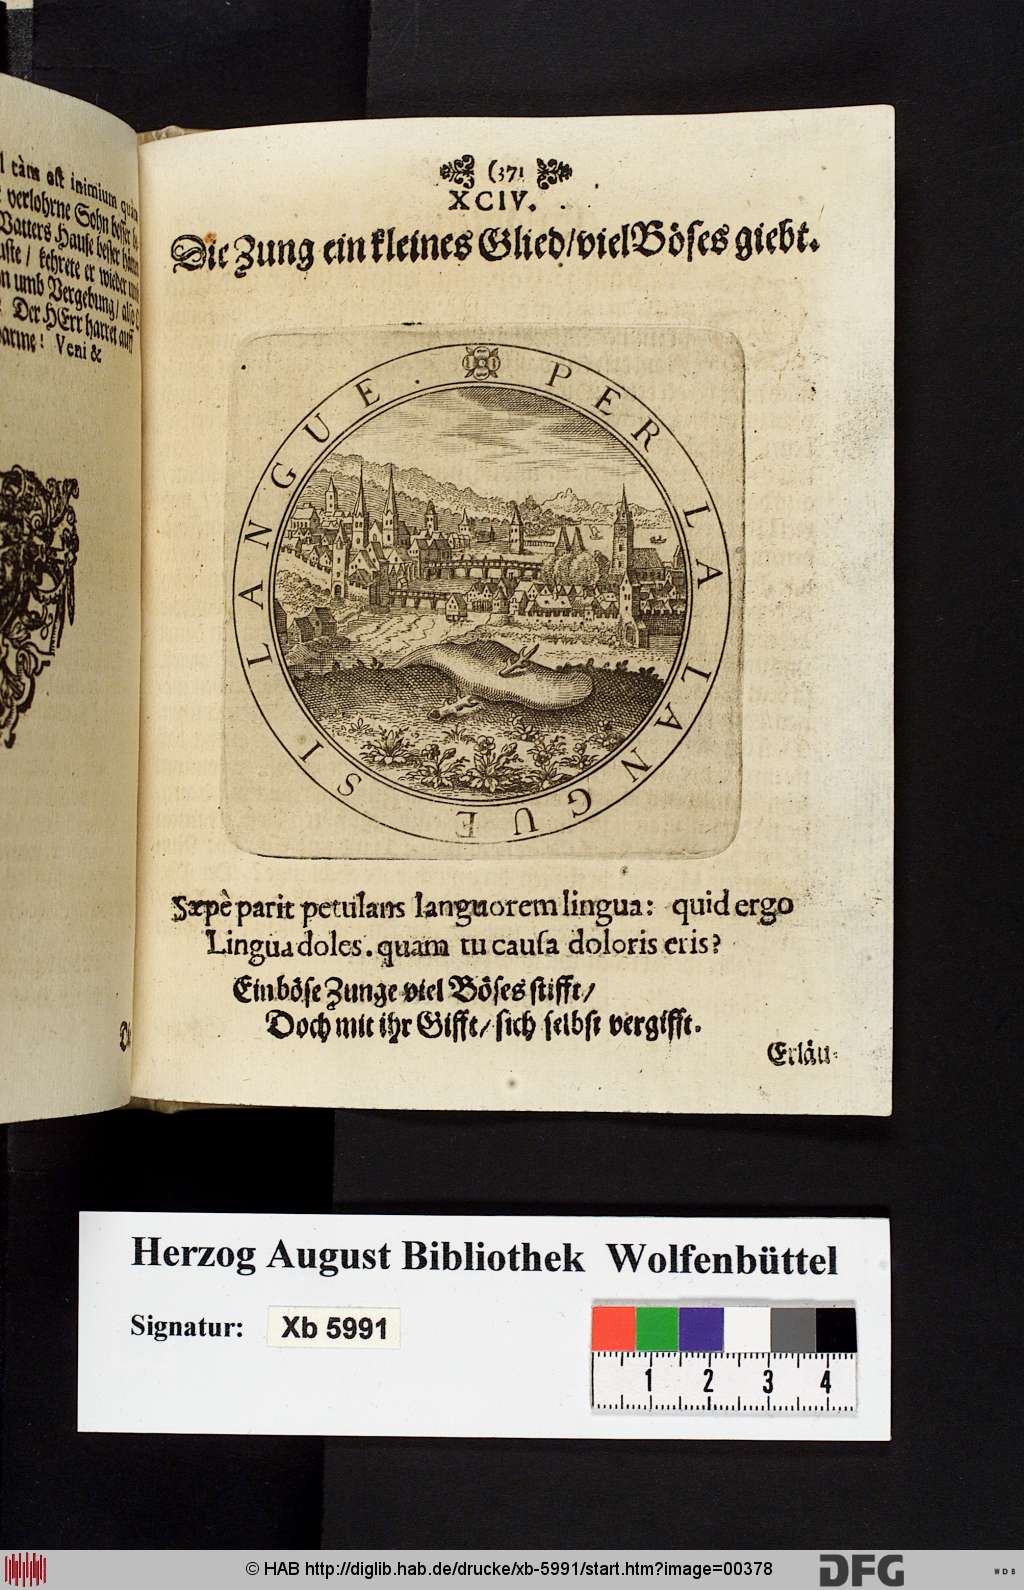 l càm est inimium quàm
verlohrne Sohn besser
Vatters Hause besser hätten
uste / kehrete er wieder
umb Vergebung / also
Der HErr harret auff
barme! Veni &
(371
XCIV.
Die Zung ein kleines Glied/viel Böses giebt.
PER LA LANGUE SI LANGUE.
Sæpè parit petulans languorem lingua: quid ergo
Lingua doles. quam tu causa doloris eris?
Ein böse Zunge viel Böses stifft/
Doch mit ihr Gifft/ sich selbst vergifft.
Erläu-
Herzog August Bibliothek Wolfenbüttel
Signatur: Xb 5991
1 2 3 4
© HAB http://diglib.hab.de/drucke/xb-5991/start.htm?image=00378
DFG
WDB